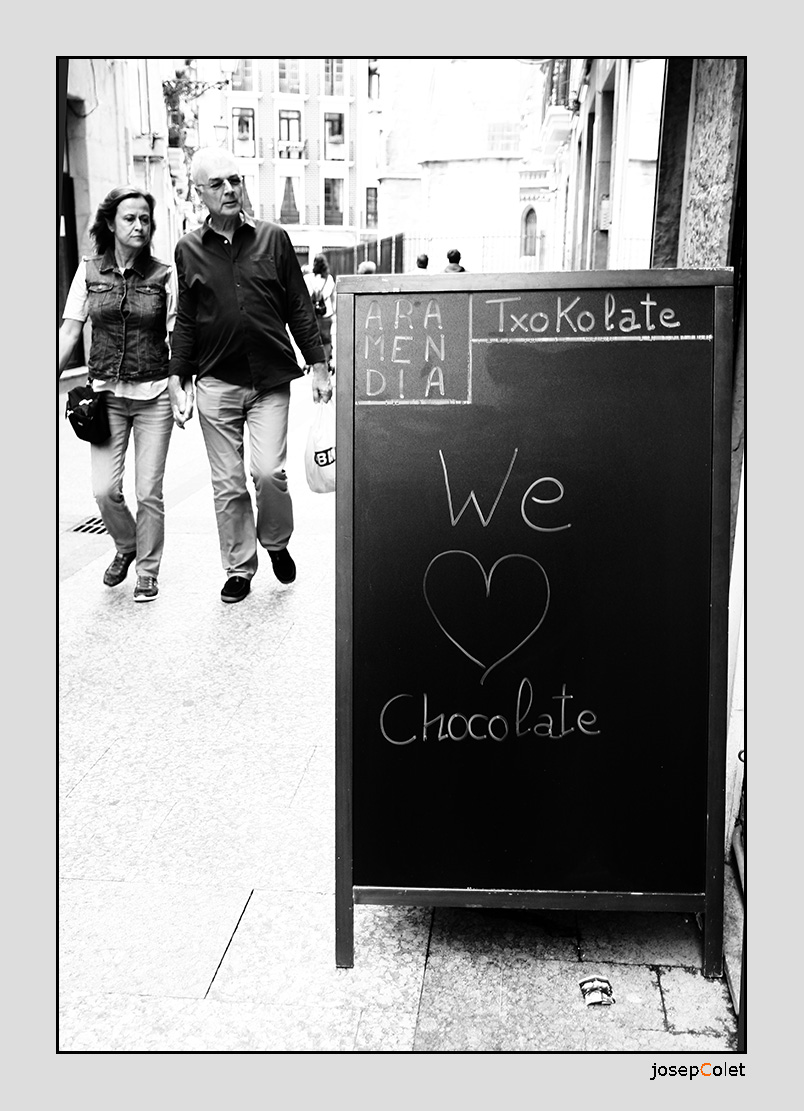 ARA
MEN
DIA
TxoKolate
We
♥
Chocolate
josepColet